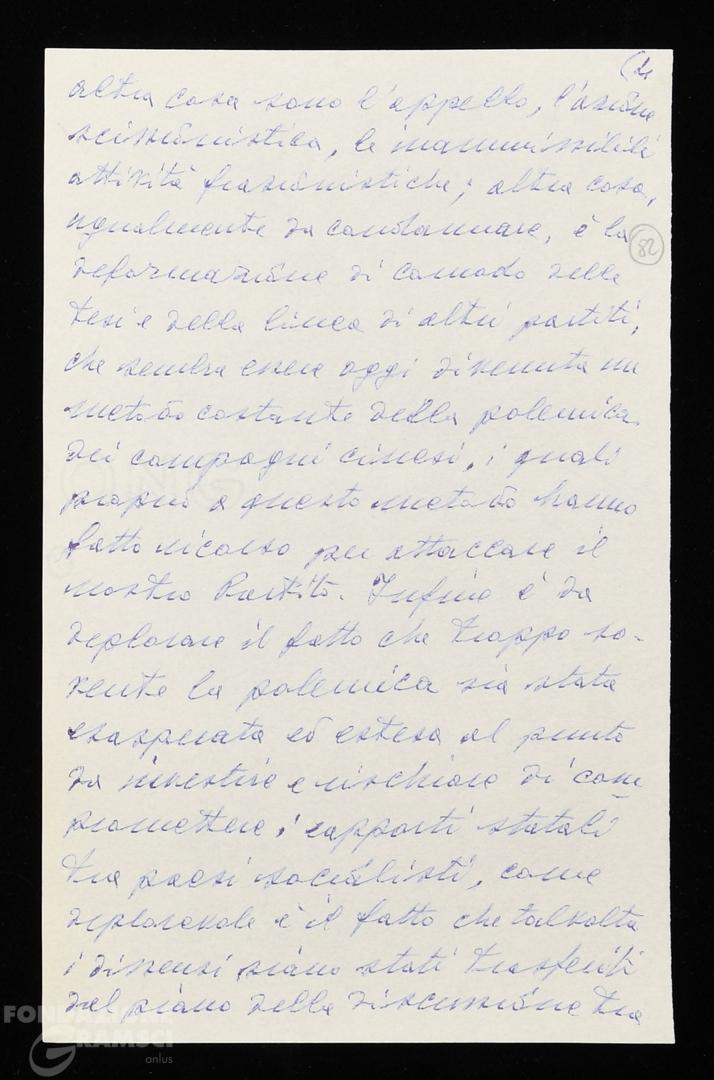 (2
altra cosa sono l'appello, l'azione
scissionistica, le inammissibili
attività frazionistiche; altra cosa,
ugualmente da condannare, è la
82
deformazione di comodo delle
tesi e della linea di altri partiti,
che sembra essere oggi divenuta un
metodo costante della polemica
dei compagni cinesi, i quali
proprio a questo metodo hanno
fatto ricorso per attaccare il
nostro Partito. Infine è da
deplorare il fatto che troppo so-
vente la polemica sia stata
esasperata ed estesa al punto
da investire e rischiare di com
promettere i rapporti statali
tra paesi socialisti, come
deplorevole è il fatto che talvolta
i dissensi siano stati trasferiti
dal piano della discussione tra
FONDAZIONE
GRAMSCI
onlus